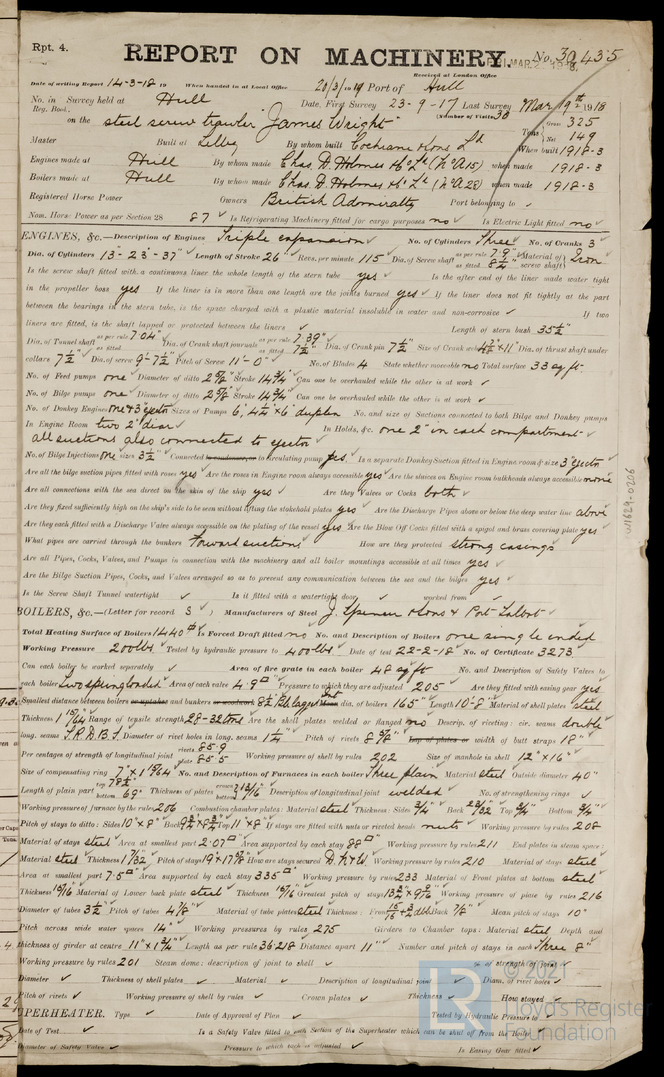 Rpt. 4.
REPORT ON MACHINERY. No. 30435
Received at London Office
Date of writing Report 14-3-18 19 When handed in at Local Office 20/3/1919 Port of Hull
No. in Survey held at Hull Date, First Survey 23-9-17 Last Survey Mar 19th 1918
Reg. Book. (Number of Visits 30
on the steel screw trawler "James Wright" Tons Gross 325 Net 149
Master Built at Selby By whom built Cochrane & Sons Ld When built 1918-3
Engines made at Hull By whom made Chas. D. Holmes & Co Ld (No A15) when made 1918-3
Boilers made at Hull By whom made Chas. D. Holmes & Co Ld when made 1918-3
Registered Horse Power Owners British Admiralty Port belonging to
Nom. Horse Power as per Section 28 87 Is Refrigerating Machinery fitted for cargo purposes no Is Electric Light fitted no
ENGINES, &c.—Description of Engines Triple expansion No. of Cylinders Three No. of Cranks 3
Dia. of Cylinders 13"-23"-37" Length of Stroke 26" Revs. per minute 115 Dia. of Screw shaft as per rule 7.9" as fitted 8¼" Material of screw shaft Iron
Is the screw shaft fitted with a continuous liner the whole length of the stern tube yes Is the after end of the liner made water tight
in the propeller boss yes If the liner is in more than one length are the joints burned yes If the liner does not fit tightly at the part
between the bearings in the stern tube, is the space charged with a plastic material insoluble in water and non-corrosive If two
liners are fitted, is the shaft lapped or protected between the liners Length of stern bush 35½"
Dia. of Tunnel shaft as per rule 7.04" as fitted Dia. of Crank shaft journals as per rule 7.39" as fitted 7½" Dia. of Crank pin 7½" Size of Crank webs Dia. of thrust shaft under
collars 7½" Dia. of screw 9'-7½" Pitch of Screw 11'-0" No. of Blades 4 State whether moveable no Total surface 33 sq ft.
No. of Feed pumps one Diameter of ditto 2⅝" Stroke 14¾" Can one be overhauled while the other is at work
No. of Bilge pumps one Diameter of ditto 2⅝" Stroke 14¾" Can one be overhauled while the other is at work
No. of Donkey Engines one & 3" ejector Sizes of Pumps 6", 4½" x 6" duplex No. and size of Suctions connected to both Bilge and Donkey pumps
In Engine Room two 2" diar In Holds, &c. one 2" in each compartment
all suctions also connected to ejector
No. of Bilge Injections one sizes 3½" Connected to condenser, or to circulating pump yes Is a separate Donkey Suction fitted in Engine room & size 3" ejector
Are all the bilge suction pipes fitted with roses yes Are the roses in Engine room always accessible yes Are the sluices on Engine room bulkheads always accessible none
Are all connections with the sea direct on the skin of the ship yes Are they Valves or Cocks both
Are they fixed sufficiently high on the ship's side to be seen without lifting the stokehold plates yes Are the Discharge Pipes above or below the deep water line above
Are they each fitted with a Discharge Valve always accessible on the plating of the vessel yes Are the Blow Off Cocks fitted with a spigot and brass covering plate yes
What pipes are carried through the bunkers Forward suctions How are they protected strong casings
Are all Pipes, Cocks, Valves, and Pumps in connection with the machinery and all boiler mountings accessible at all times yes
Are the Bilge Suction Pipes, Cocks, and Valves arranged so as to prevent any communication between the sea and the bilges yes
Is the Screw Shaft Tunnel watertight Is it fitted with a watertight door worked from
BOILERS, &c.—(Letter for record 3) Manufacturers of Steel J. Spencer & Sons & Port Talbot
Total Heating Surface of Boilers 1440 Is Forced Draft fitted no No. and Description of Boilers one single ended
Working Pressure 200 lbs Tested by hydraulic pressure to 400 lbs Date of test 22-2-18 No. of Certificate 3273
Can each boiler be worked separately Area of fire grate in each boiler 48 sq ft No. and Description of Safety Valves to
each boiler two spring loaded Area of each valve 4.9 Pressure to which they are adjusted 205 Are they fitted with easing gear yes
Smallest distance between boilers or uptakes and bunkers or woodwork 8½" lagged dia. of boilers 165" Length 10'-8" Material of shell plates steel
Thickness Range of tensile strength 28-32 tons Are the shell plates welded or flanged no Descrip. of riveting: cir. seams double
long. seams T.R.D.B.S. Diameter of rivet holes in long. seams 1¼" Pitch of rivets 8⅝" Lap of plates or width of butt straps 18"
Per centages of strength of longitudinal joint rivets 85.9 plate 85.5 Working pressure of shell by rules 202 Size of manhole in shell 12" x 16"
Size of compensating ring No. and Description of Furnaces in each boiler three plain Material steel Outside diameter 40"
Length of plain part top 78½" bottom 69" Thickness of plates crown bottom 13/16" Description of longitudinal joint welded No. of strengthening rings
Working pressure of furnace by the rules 206 Combustion chamber plates: Material steel Thickness: Sides ¾" Back 23/32" Top ¾" Bottom ¾"
Pitch of stays to ditto: Sides 10" x 8" Back Top 11" x 8" If stays are fitted with nuts or riveted heads nuts Working pressure by rules 208
Material of stays steel Area at smallest part 2.07 Area supported by each stay 88 Working pressure by rules 211 End plates in steam space:
Material steel Thickness 1 7/32" Pitch of stays How are stays secured D.N & W. Working pressure by rules 210 Material of stays steel
Area at smallest part 7.5 Area supported by each stay 335 Working pressure by rules 233 Material of Front plates at bottom steel
Thickness 15/16" Material of Lower back plate steel Thickness Greatest pitch of stays Working pressure of plate by rules 216
Diameter of tubes 3½" Pitch of tubes 4⅞" Material of tube plates steel Thickness: Front Back ⅞" Mean pitch of stays 10"
Pitch across wide water spaces 14" Working pressures by rules 275 Girders to Chamber tops: Material steel Depth and
thickness of girder at centre 11" x 1¾" Length as per rule Distance apart 11" Number and pitch of stays in each Three 8"
Working pressure by rules 201 Steam dome: description of joint to shell % of strength of joint
Diameter Thickness of shell plates Material Description of longitudinal joint Diam. of rivet holes
Pitch of rivets Working pressure of shell by rules Crown plates Thickness How stayed
UPERHEATER. Type Date of Approval of Plan Tested by Hydraulic Pressure to
Date of Test Is a Safety Valve fitted to each Section of the Superheater which can be shut off from the Boiler
Diameter of Safety Valve Pressure to which each is adjusted Is Easing Gear fitted
W1629-0206
© 2021
Lloyd's Register
Foundation